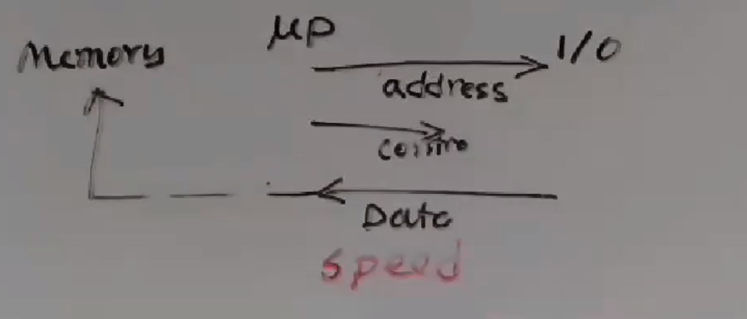 Memory μP I/O
address
contro
Data
speed